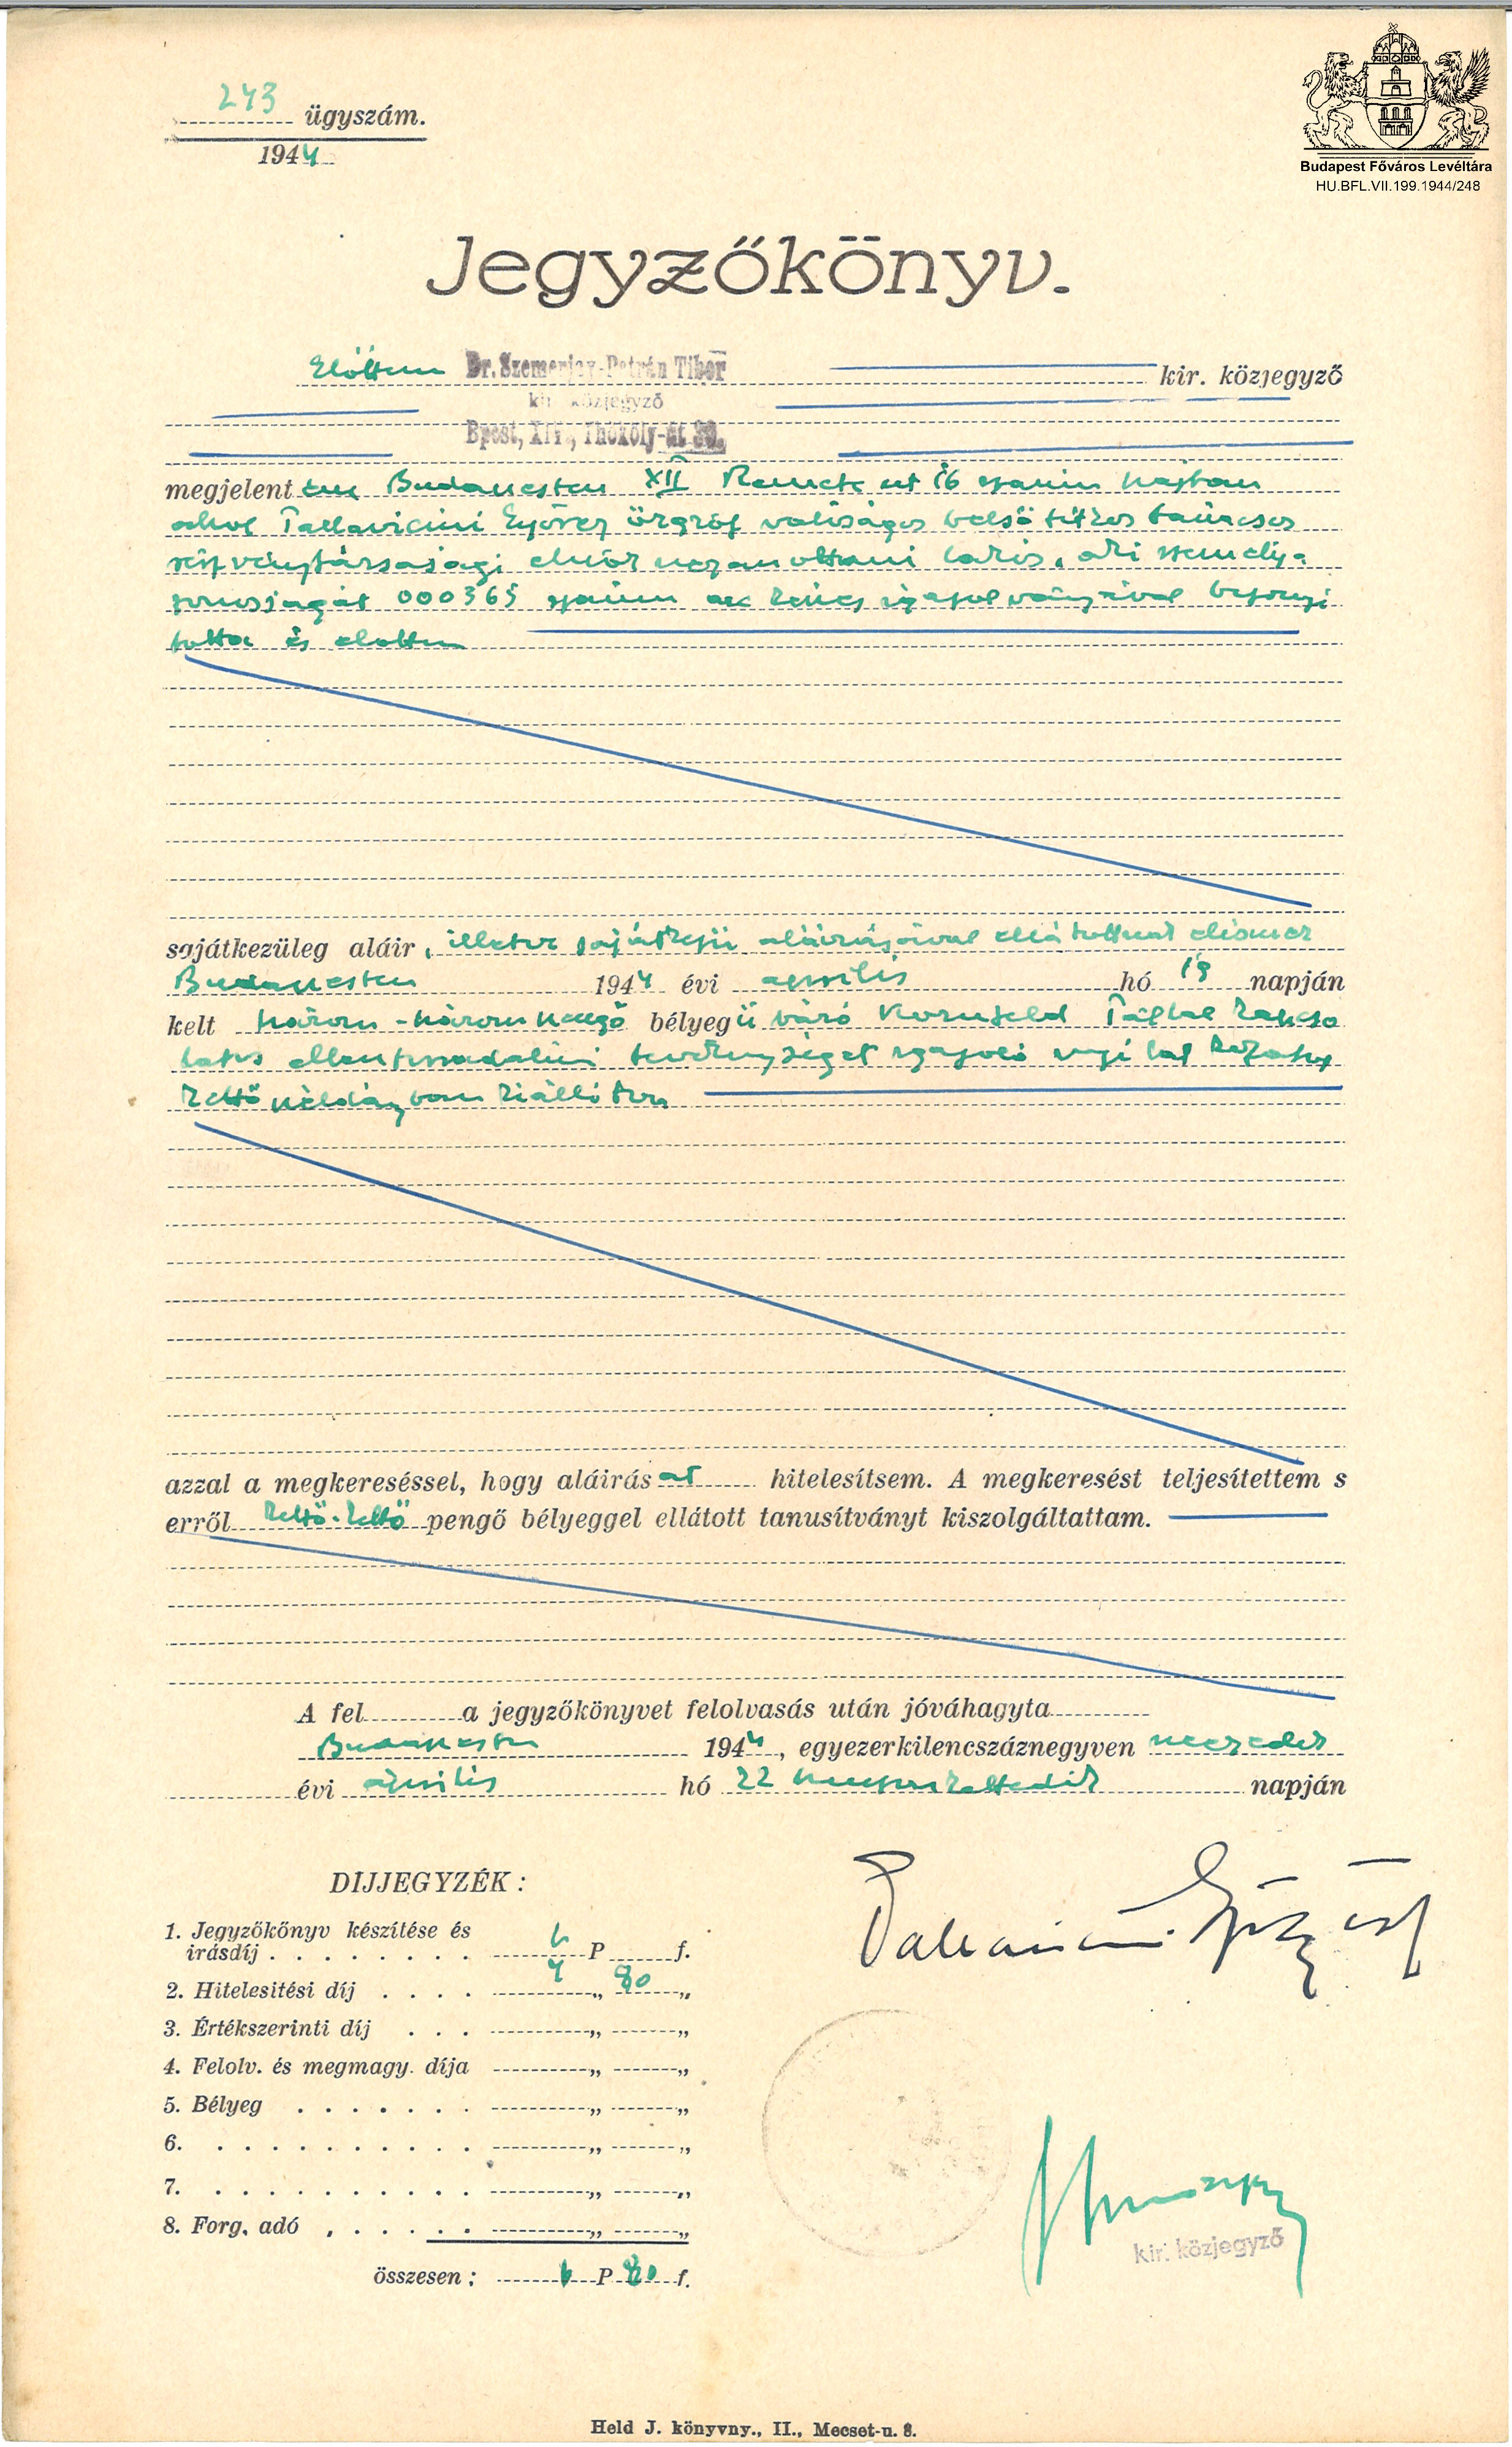 243 ügyszám.
1944
Budapest Főváros Levéltára
HU.BFL.VII.199.1944/248
Jegyzőkönyv.
Előttem Dr. Szemerjay-Petrán Tibor kir. közjegyző
kir. közjegyző
Bpest, XIV., Thököly-út 30.
megjelent tem Budapesten XII Remete út 16 számú házban
ahol Pallavicini György őrgróf valóságos belső titkos tanácsos
részvénytársasági elnök ugyanottani lakos, aki személya-
zonosságát 000365 számú igazolványával bizonyí
totta és előttem
sajátkezüleg aláir, illetve sajátkezű aláírásával ellátottnak elismer
Budapesten 1944 évi április hó 19 napján
kelt három-három pengő bélyegű báró Kornfeld Pállal kapcso
latos ellenforradalmi tevékenységet igazoló
kettő példányban kiállított
azzal a megkereséssel, hogy aláirásat hitelesítsem. A megkeresést teljesítettem s
erről kettő-kettő pengő bélyeggel ellátott tanusítványt kiszolgáltattam.
A fel a jegyzőkönyvet felolvasás után jóváhagyta
Budapesten 1944, egyezerkilencszáznegyven negyedik
évi április hó 22 huszonkettedik napján
DÍJJEGYZÉK:
1. Jegyzőkönyv készítése és
irásdíj . . . . . . . . P f.
2. Hitelesitési díj . . . . 4 „ 80 „
3. Értékszerinti díj . . . „ „
4. Felolv. és megmagy. díja „ „
5. Bélyeg . . . . . . . „ „
6. . . . . . . . . . . „ „
7. . . . . . . . . . . „ „
8. Forg. adó , . . . . . „ „
összesen: P 80 f.
Pallavicini György
kir. közjegyző
Held J. könyvny., II., Mecset-u. 8.